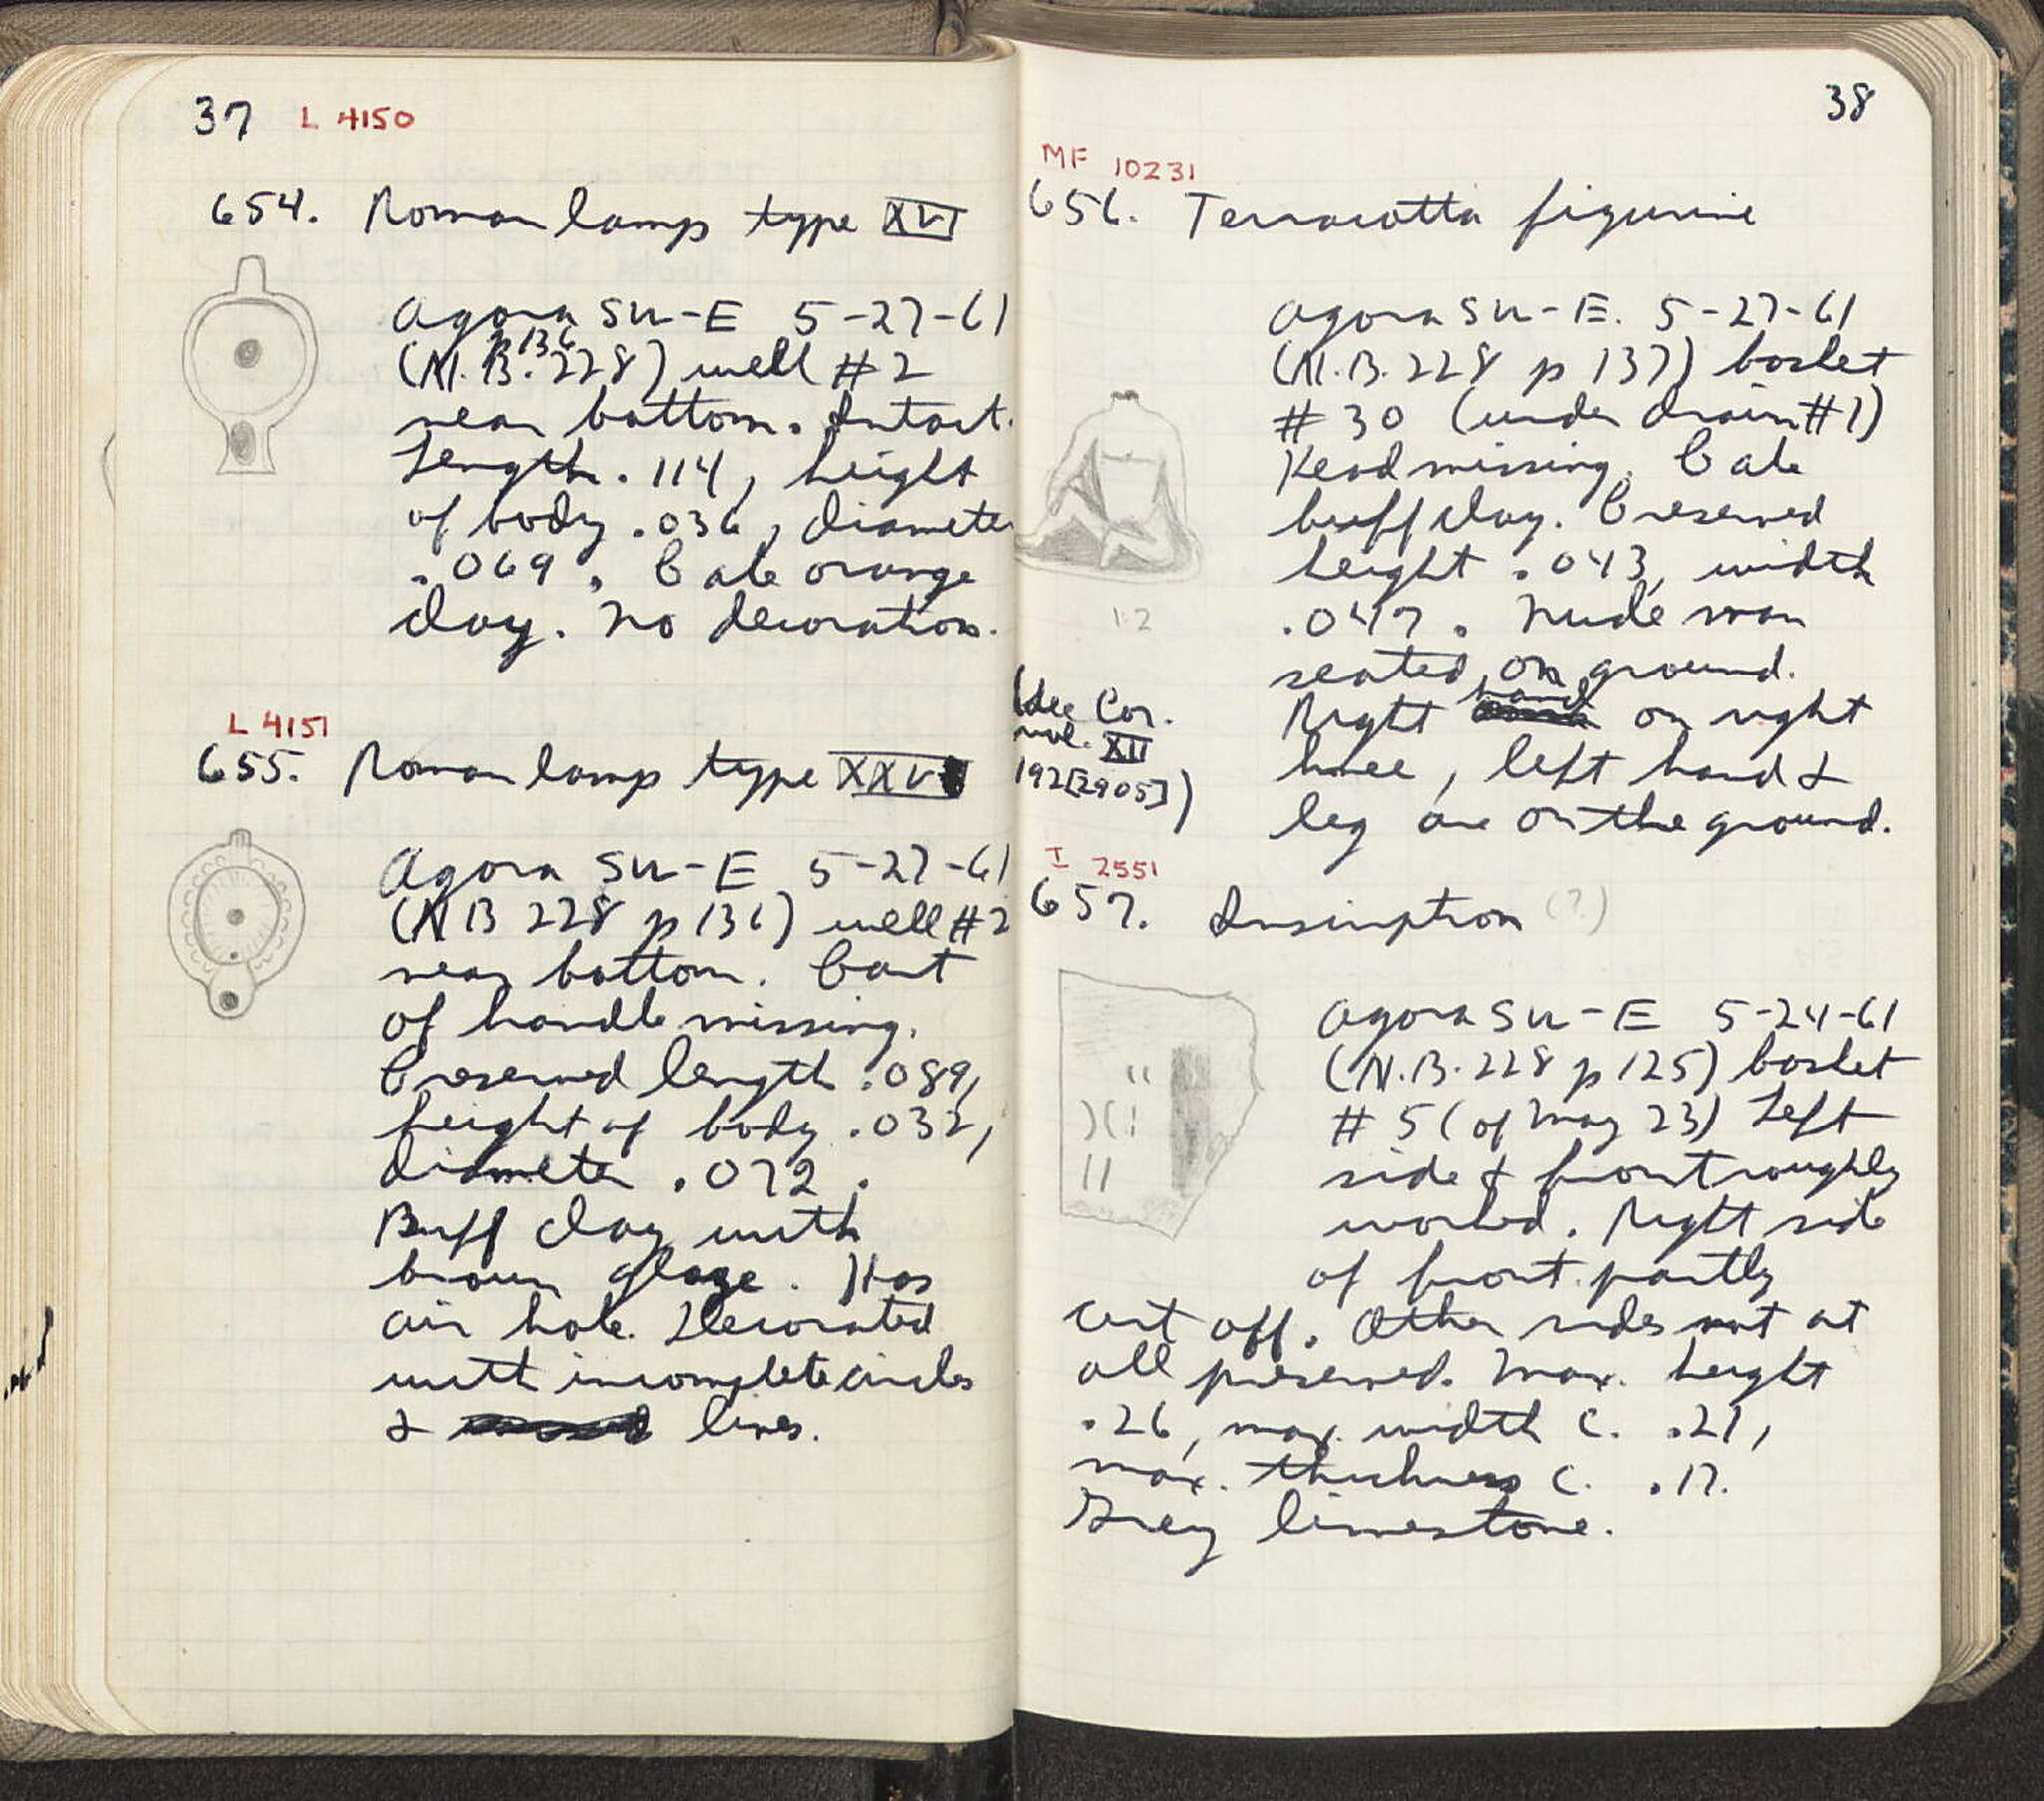 37 L 4150
654. Roman lamp type XVI
Agora SW-E 5-27-61
p 136
(N.B. 228) well #2
near bottom. Intact.
Length .114, height
of body .036, diameter
.069. Pale orange
clay. No decoration.
L 4151
655. Roman lamp type XXV
Agora SW-E 5-27-61
(NB 228 p 136) well #2
near bottom. Part
of handle missing.
Preserved length .089,
height of body .032,
diameter .072.
Buff clay with
brown glaze. Has
air hole. Decorated
with incomplete circles
& lines.
38
MF 10231
656. Terracotta figurine
Agora SW-E. 5-27-61
(N.B. 228 p 137) basket
#30 (under drain #1)
Head missing. Pale
buff clay. Preserved
height .043, width
.047. Nude man
seated on ground.
Right hand on right
knee, left hand &
leg are on the ground.
1:2
(See Cor.
vol. XII
192[2905])
I 2551
657. Inscription (?)
Agora SW-E 5-24-61
(N.B. 228 p 125) basket
#5 (of May 23) Left
side & front roughly
worked. Right side
of front partly
cut off. Other sides not at
all preserved. Max. height
.26, max. width c. .21,
max. thickness c. .17.
Grey limestone.